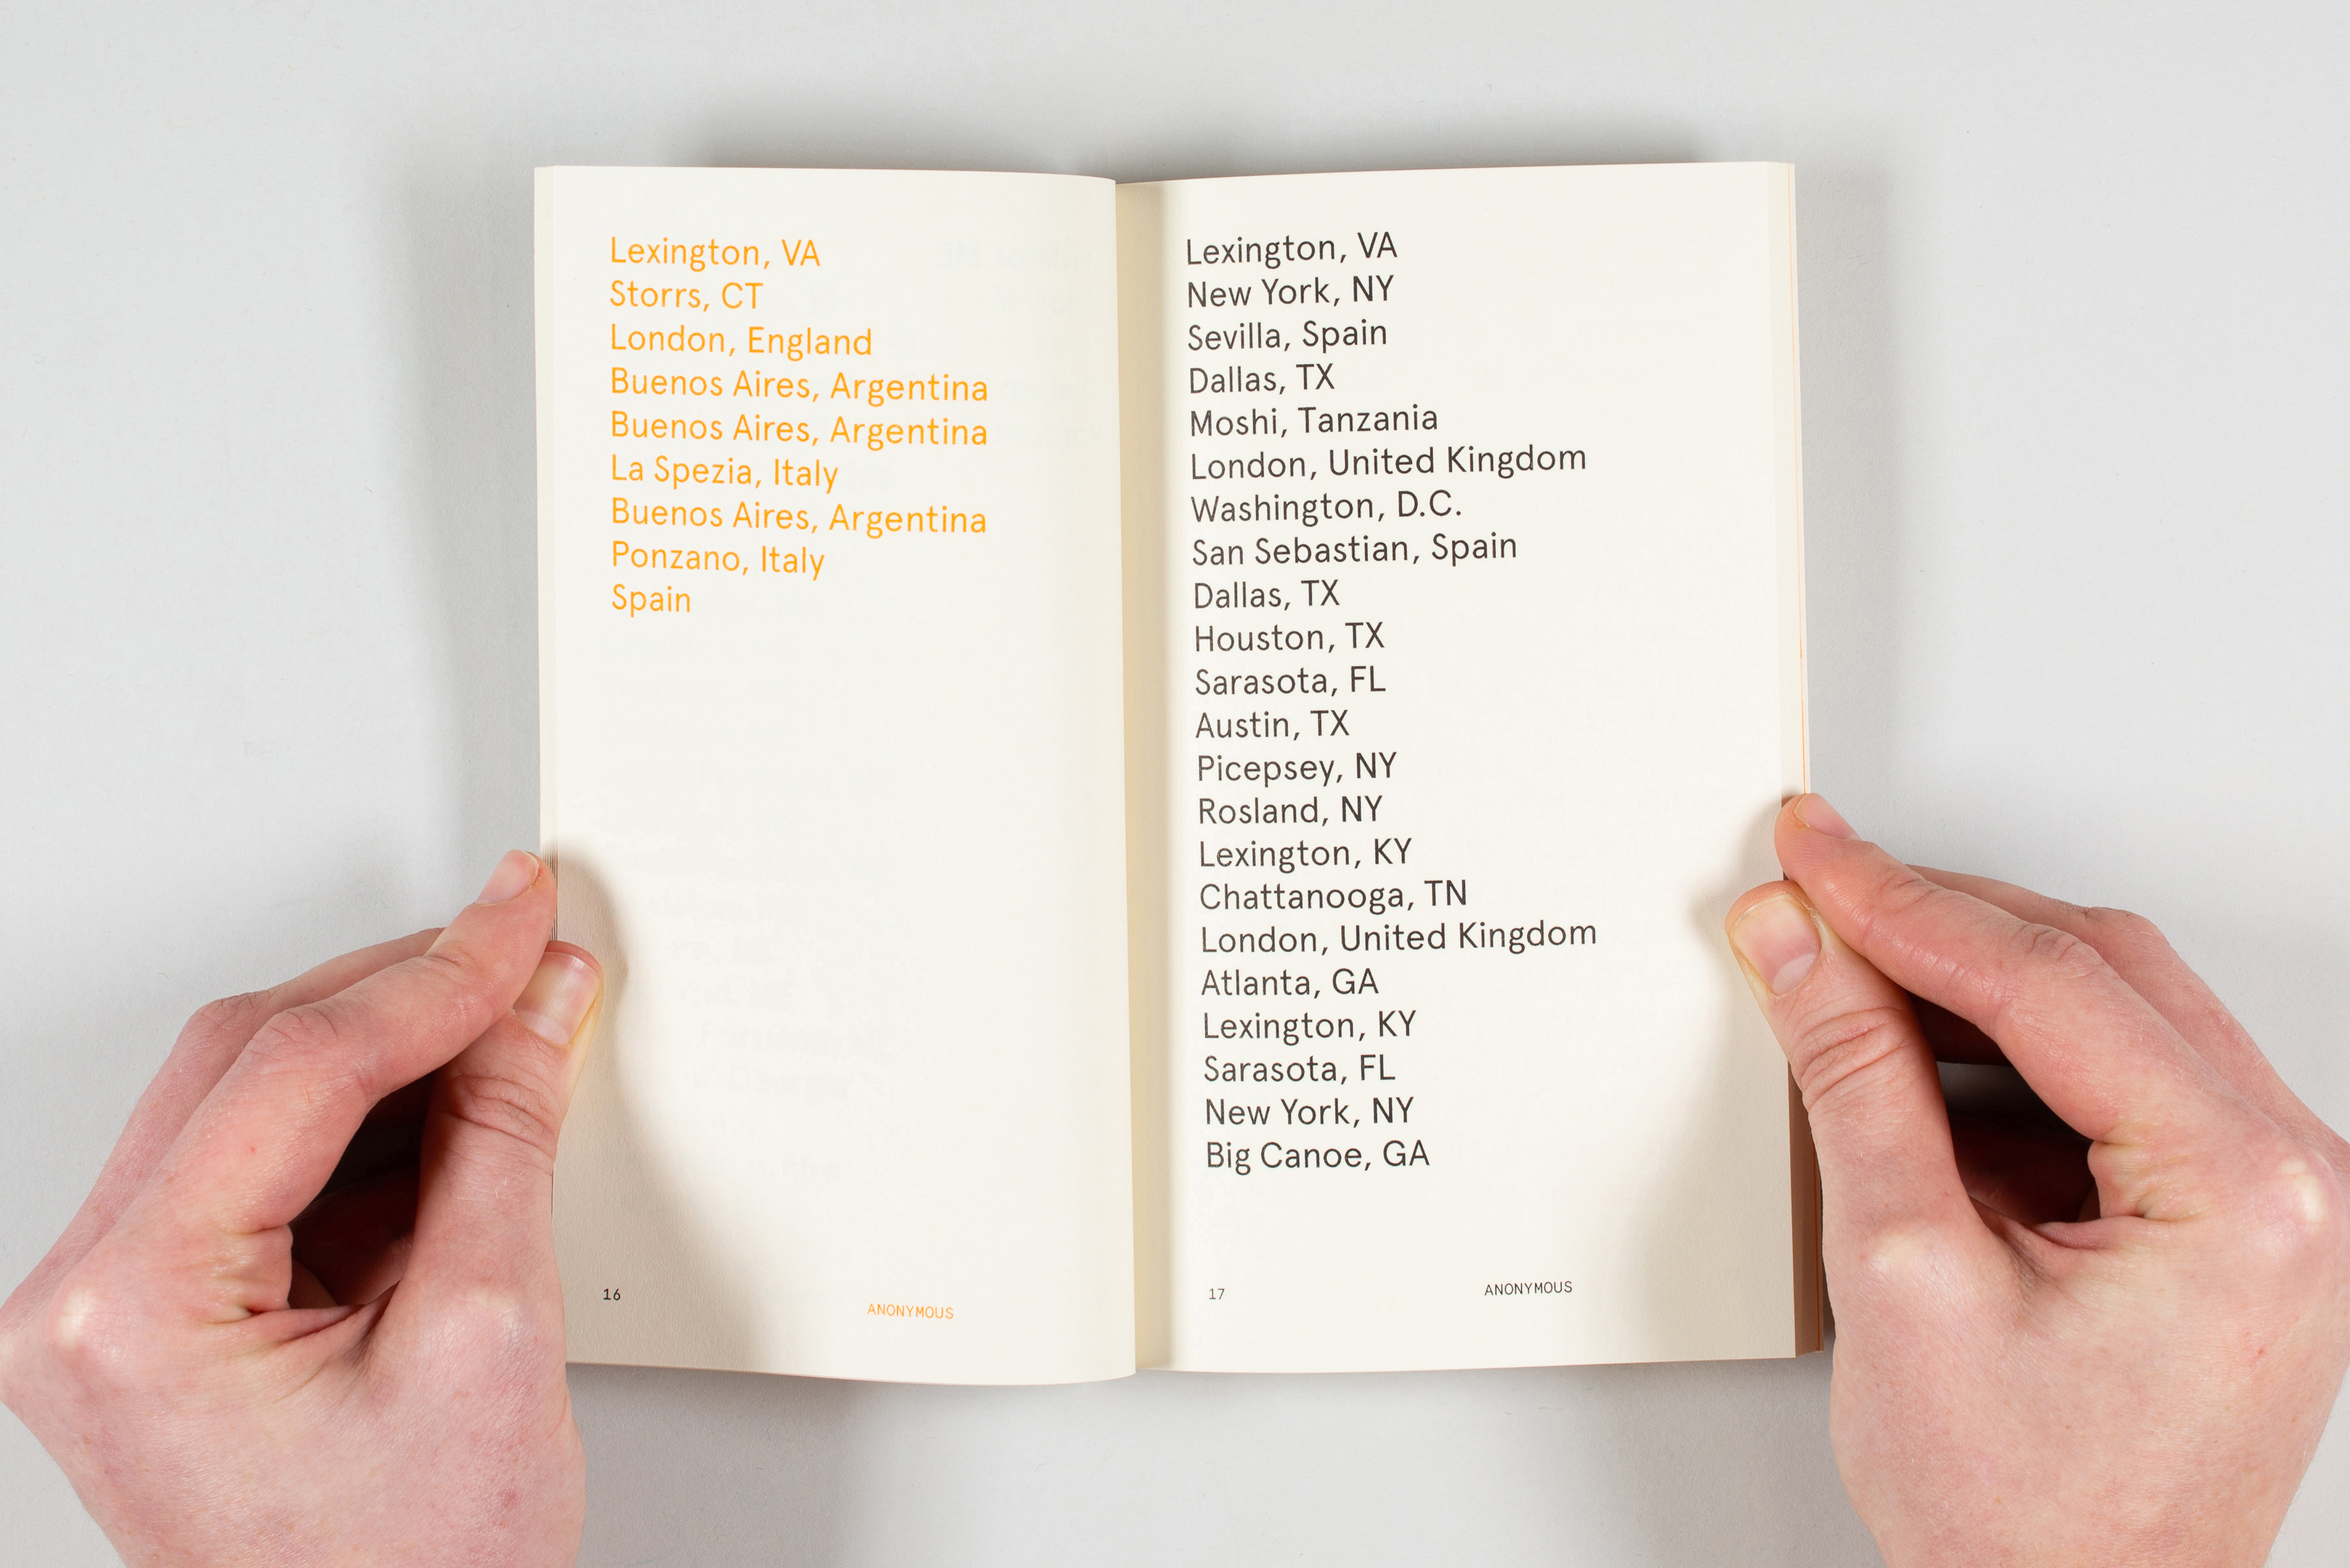 Lexington, VA
Storrs, CT
London, England
Buenos Aires, Argentina
Buenos Aires, Argentina
La Spezia, Italy
Buenos Aires, Argentina
Ponzano, Italy
Spain
16
ANONYMOUS
Lexington, VA
New York, NY
Sevilla, Spain
Dallas, TX
Moshi, Tanzania
London, United Kingdom
Washington, D.C.
San Sebastian, Spain
Dallas, TX
Houston, TX
Sarasota, FL
Austin, TX
Picepsey, NY
Rosland, NY
Lexington, KY
Chattanooga, TN
London, United Kingdom
Atlanta, GA
Lexington, KY
Sarasota, FL
New York, NY
Big Canoe, GA
17
ANONYMOUS